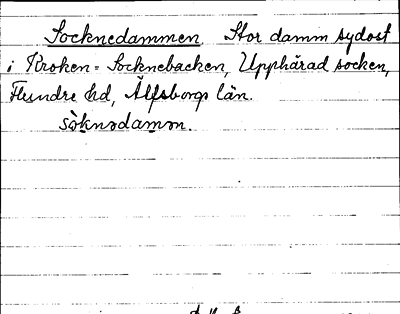 Socknedammen. Stor damm sydost
i Kroken = Socknebacken, Upphärad socken,
Flundre hd, Älfsborgs län.
såknədamən.